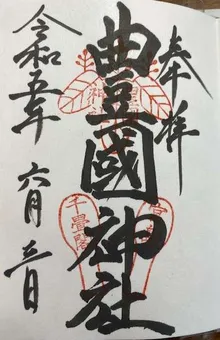 奉拝
豊國神社
千畳閣
令和五年
六月三日